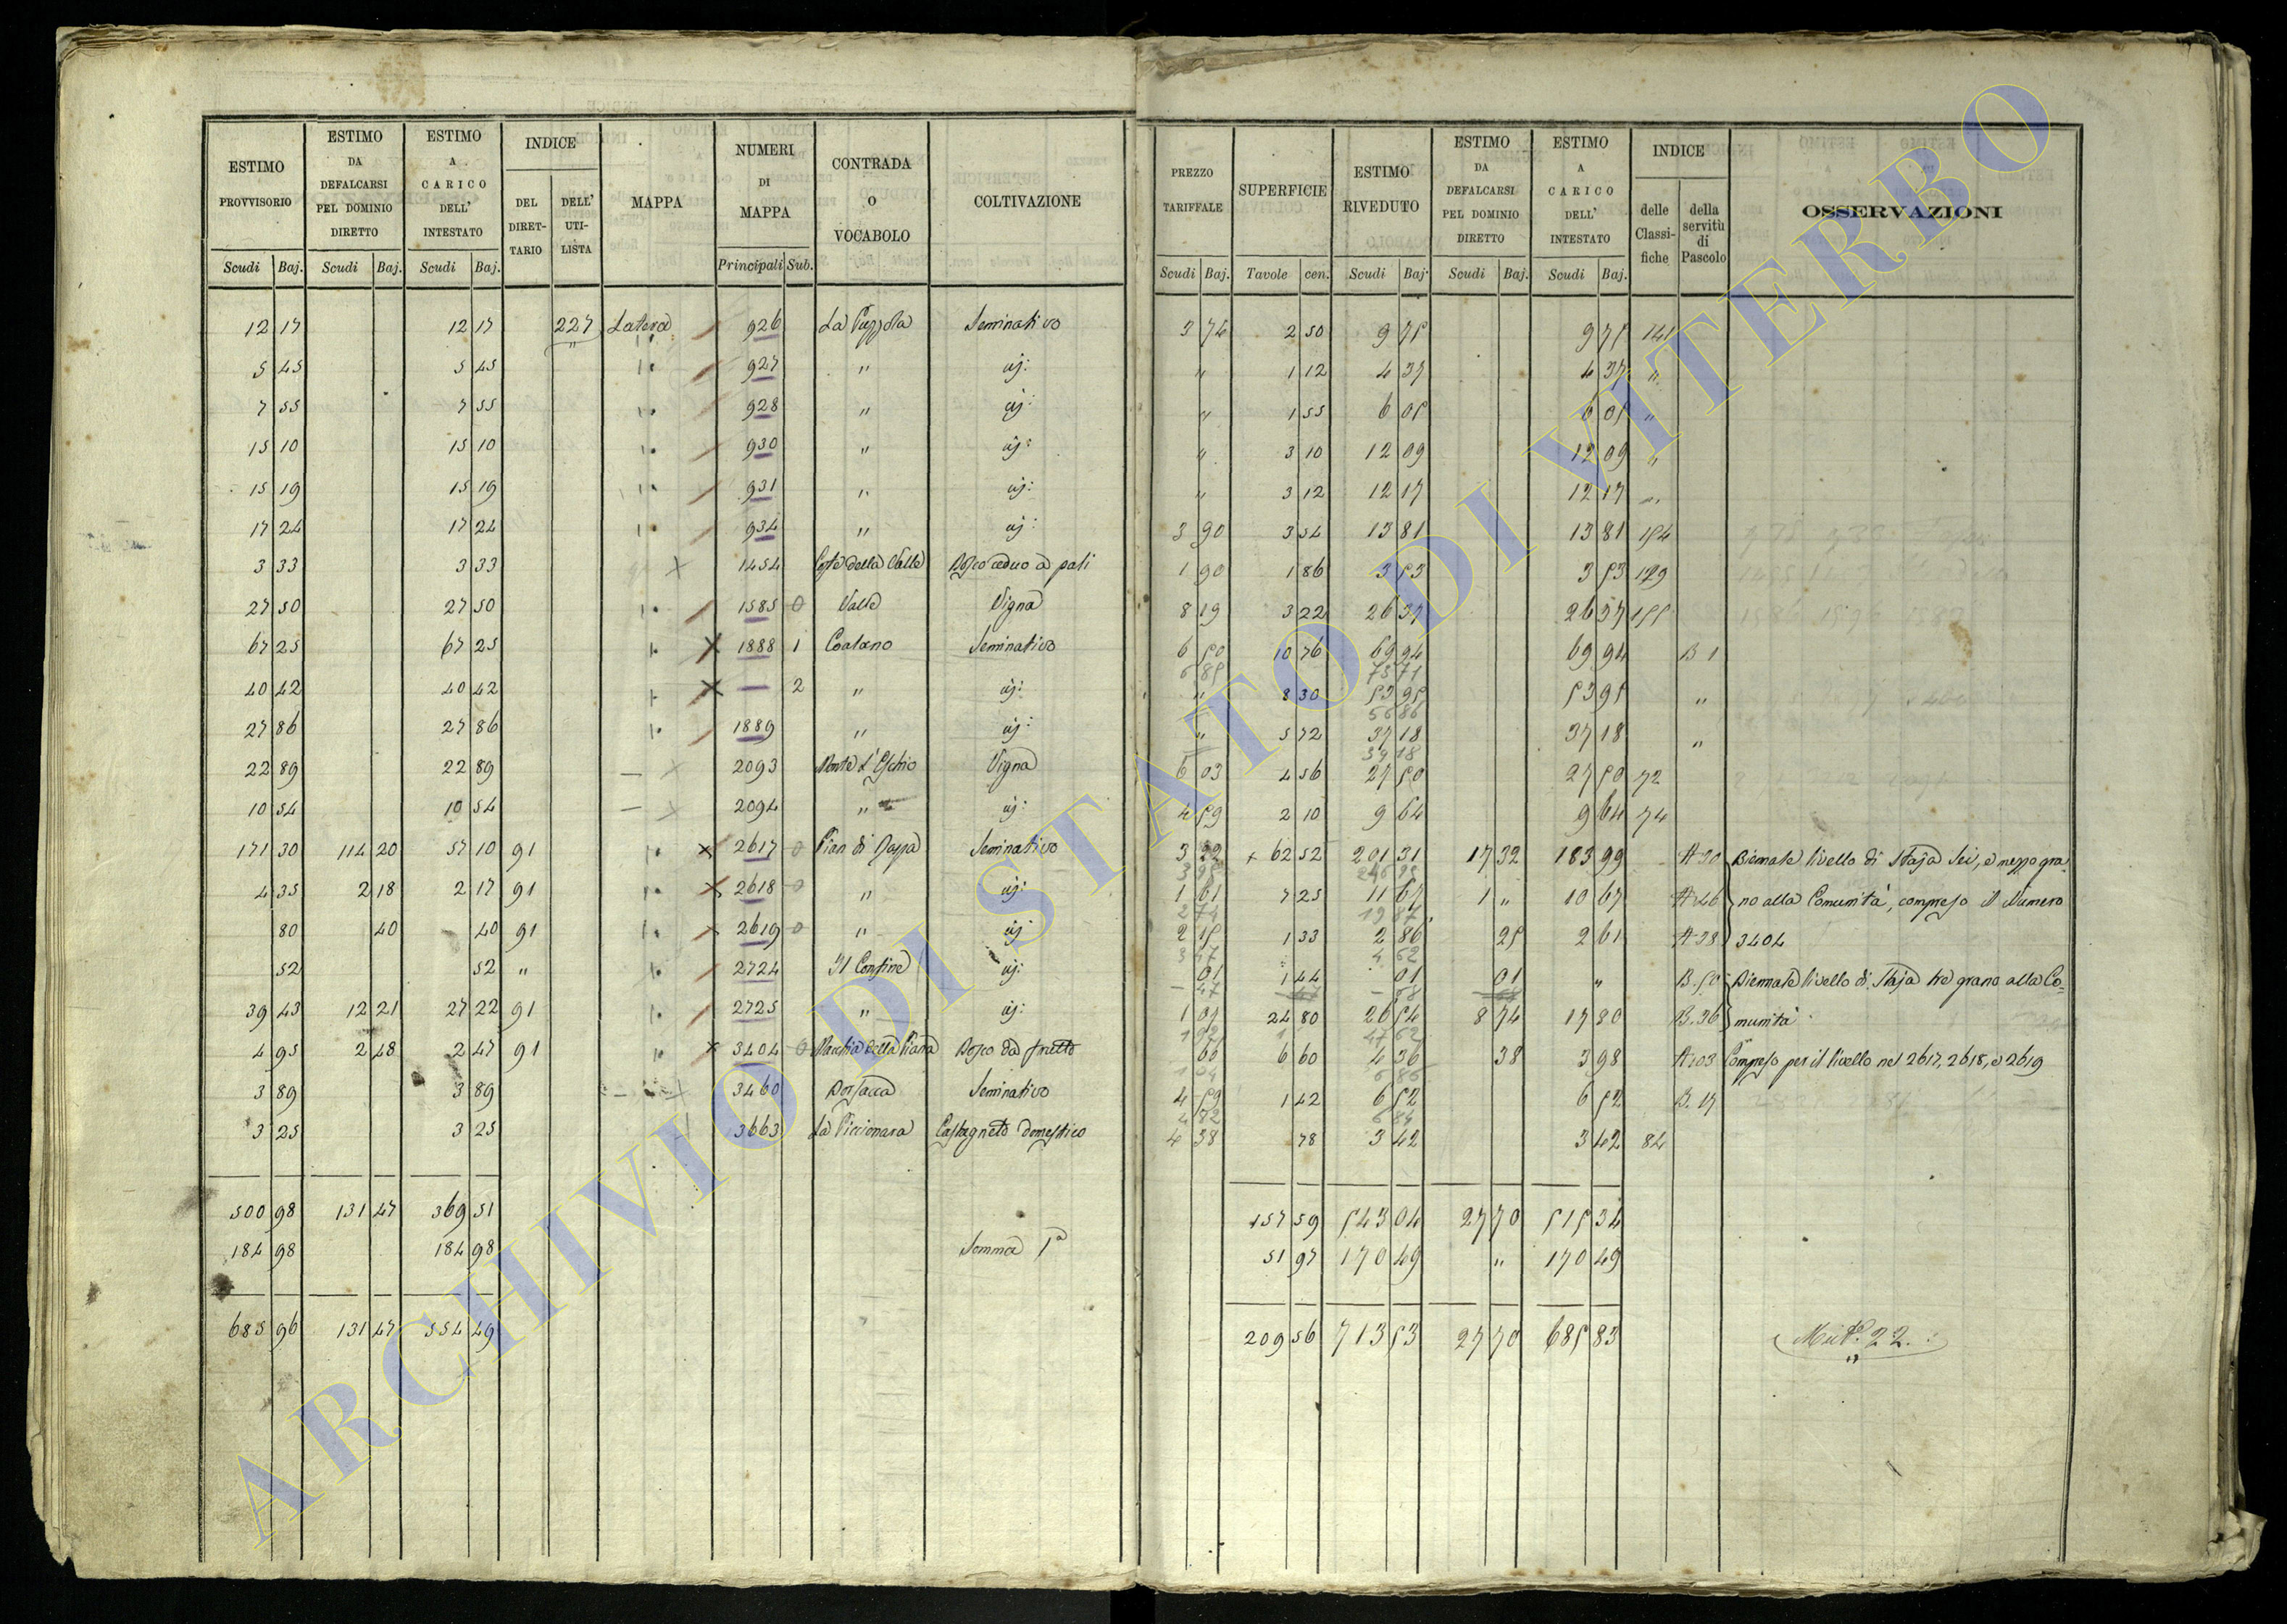 ESTIMO PROVVISORIO | ESTIMO DA DEFALCARSI PEL DOMINIO DIRETTO | ESTIMO A CARICO DELL' INTESTATO | INDICE DEL DIRETTARIO | INDICE DELL' UTILISTA | MAPPA | NUMERI DI MAPPA | CONTRADA O VOCABOLO | COLTIVAZIONE | PREZZO TARIFFALE | SUPERFICIE | ESTIMO RIVEDUTO | ESTIMO DA DEFALCARSI PEL DOMINIO DIRETTO | ESTIMO A CARICO DELL' INTESTATO | INDICE delle Classifiche | della servitù di Pascolo | OSSERVAZIONI
Scudi Baj. | Scudi Baj. | Scudi Baj. | Principali Sub. | Scudi Baj. | Tavole cen. | Scudi Baj. | Scudi Baj. | Scudi Baj.
12 17 | 12 17 | 227 | Latera | 926 | La Puzzola | Seminativo | 3 74 | 2 50 | 9 75 | 9 75 | 141
5 45 | 5 45 | 927 | " | id: | " | 1 12 | 4 37 | 4 37 | "
7 55 | 7 55 | 928 | " | id: | " | 1 55 | 6 05 | 6 05 | "
15 10 | 15 10 | 930 | " | id: | " | 3 10 | 12 09 | 12 09 | "
15 19 | 15 19 | 931 | " | id: | " | 3 12 | 12 17 | 12 17 | "
17 24 | 17 24 | 934 | " | id: | 3 90 | 3 54 | 13 81 | 13 81 | 154
3 33 | 3 33 | 1454 | Coste della Valle | Bosco ceduo a pali | 1 90 | 1 86 | 3 53 | 3 53 | 129
27 50 | 27 50 | 1585 0 | Valle | Vigna | 8 19 | 3 22 | 26 37 | 26 37 | 155
67 25 | 67 25 | 1888 1 | Seminativo | 6 50 | 10 76 | 69 94 | 69 94 | B 1
6 85 | 73 71
40 42 | 40 42 | — 2 | " | id: | " | 8 30 | 53 95 | 53 95 | "
56 86
27 86 | 27 86 | 1889 | " | id: | " | 5 72 | 37 18 | 37 18 | "
39 18
22 89 | 22 89 | 2093 | Monte l'Eschio | Vigna | 6 03 | 4 56 | 27 50 | 27 50 | 72
10 54 | 10 54 | 2094 | " | id: | 4 59 | 2 10 | 9 64 | 9 64 | 74
171 30 | 114 20 | 57 10 | 91 | 2617 0 | Pian di | Seminativo | 3 22 | 62 52 | 201 31 | 17 32 | 183 99 | A 30 | Biennale livello di Staja Sei, e mezzo gra-
4 35 | 2 18 | 2 17 | 91 | 2618 0 | " | id: | 1 61 | 7 25 | 11 67 | 1 " | 10 67 | A 46 | no alla Comunità, compreso il Numero
2 74 | 19 87
80 | 40 | 40 | 91 | 2619 0 | " | id: | 2 15 | 1 33 | 2 86 | 25 | 2 61 | A 38 | 3404
4 62
52 | 52 | " | 2724 | Il Confine | id: | 01 | 1 44 | 01 | 01 | " | B. 50 | Biennale livello di Staja tre grano alla Co-
47 | 68
39 43 | 12 21 | 27 22 | 91 | 2725 | " | id: | 1 07 | 24 80 | 26 54 | 8 74 | 17 80 | B. 36 | munità
1 92 | 47 62
4 95 | 2 48 | 2 47 | 91 | 3404 0 | Macchia della Piana | Bosco da frutto | 66 | 6 60 | 4 36 | 38 | 3 98 | A 103 | Compreso per il livello nel 2617, 2618, e 2619
1 04 | 6 86
3 89 | 3 89 | 3460 | Seminativo | 4 59 | 1 42 | 6 52 | 6 52 | B. 17
4 82 | 6 84
3 25 | 3 25 | 3663 | La Piccionara | Castagneto domestico | 4 38 | 78 | 3 42 | 3 42 | 84
500 98 | 131 47 | 369 51 | 157 59 | 543 04 | 27 70 | 515 34
184 98 | 184 98 | Somma 1ª | 51 97 | 170 49 | " | 170 49
685 96 | 131 47 | 554 49 | 209 56 | 713 53 | 27 70 | 685 83 | 22.
ARCHIVIO DI STATO DI VITERBO